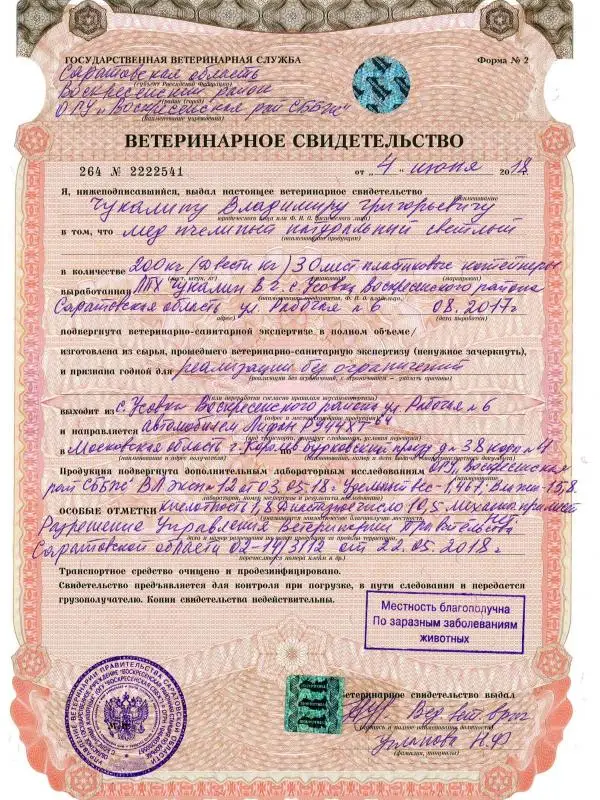 ГОСУДАРСТВЕННАЯ ВЕТЕРИНАРНАЯ СЛУЖБА
Форма № 2
Саратовская область
(субъект Российской Федерации)
Воскресенский район
(район (город))
ОГУ "Воскресенская рай СББЖ"
(наименование учреждения)
ВЕТЕРИНАРНОЕ СВИДЕТЕЛЬСТВО
264 № 2222541
от „ 4 " июня 2018
Я, нижеподписавшийся, выдал настоящее ветеринарное свидетельство
(наименование
Чукалину Владимиру Григорьевичу
юридического лица или Ф. И. О. физического лица)
в том, что мед пчелиный натуральный светлый
(наименование продукции)
в количестве 200 кг (двести кг) 30 мест пластиковые контейнеры
(мест, штук, кг) (упаковка)
выработанная ЛПХ Чукалин В.Г. с. Усовка Воскресенского района
(наименование предприятия, Ф. И. О. владельца,
Саратовская область ул. Рабочая 6 08.2017г
адрес) (дата выработки)
подвергнута ветеринарно-санитарной экспертизе в полном объеме/
изготовлена из сырья, прошедшего ветеринарно-санитарную экспертизу (ненужное зачеркнуть),
и признана годной для реализации без ограничений
(реализации без ограничений, с ограничением – указать причины)
или переработки согласно правилам ветсанэкспертизы)
выходит из с. Усовка Воскресенского района ул. Рабочая 6
(адрес и местонахождение продукции)
и направляется автомобилем Лифан Р944ХТ 64
(вид транспорта, маршрут следования, условия перевозки)
в Московская область г. Королев Бурковский д 38 корп
по
(наименование и адрес получателя)
Продукция подвергнута дополнительным лабораторным исследованиям ОГУ Воскресенская
рай СББЖ ВЛ эксп 12 от 03.05.18г Удельный вес-1,461; Влажн-15,8
лаборатории, номер экспертизы и результаты исследования)
ОСОБЫЕ ОТМЕТКИ кислотность 1,8 Диастазное число 10,5 механич. примеси нет.
Разрешение Управления Ветеринарии Правительства
дата и номер разрешения на вывоз продукции за пределы территории,
Саратовской области 02-19/3112 от 22.05.2018г
перечисляются номера клейм и др.)
Транспортное средство очищено и продезинфицировано.
Свидетельство предъявляется для контроля при погрузке, в пути следования и передается
грузополучателю. Копии свидетельства недействительны.
Местность благополучна
По заразным заболеваниям
животных
Ветеринарное свидетельство выдал
Вед вет врач
(подпись и полное наименование должности)
Н.Ф
(фамилия, инициалы)